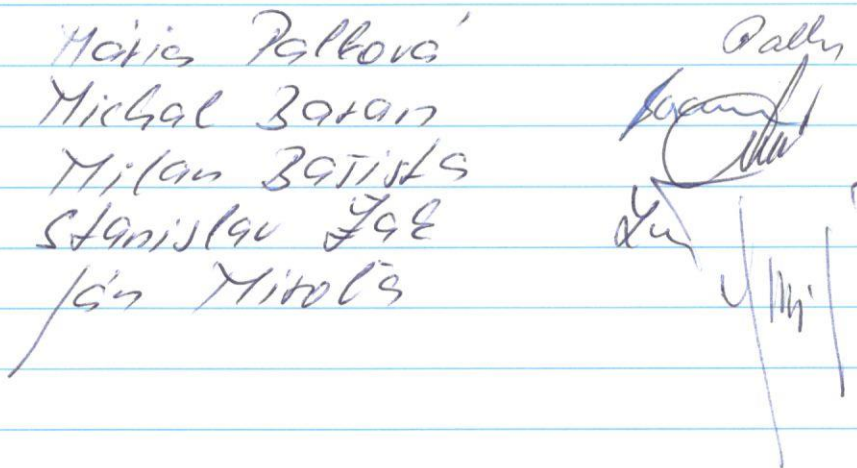 Mária Palková
Michal Baran
Milan Bašista
Stanislav Žak
Ján Miroľa